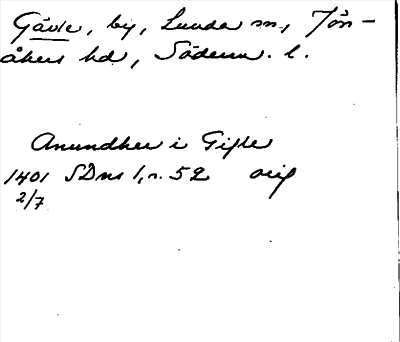 Gävle, by, Lunda sn, Jön-
åkers hd, Söderm. l.
Anundher i Giffle
1401 SDns 1, n. 52 orig
2/7